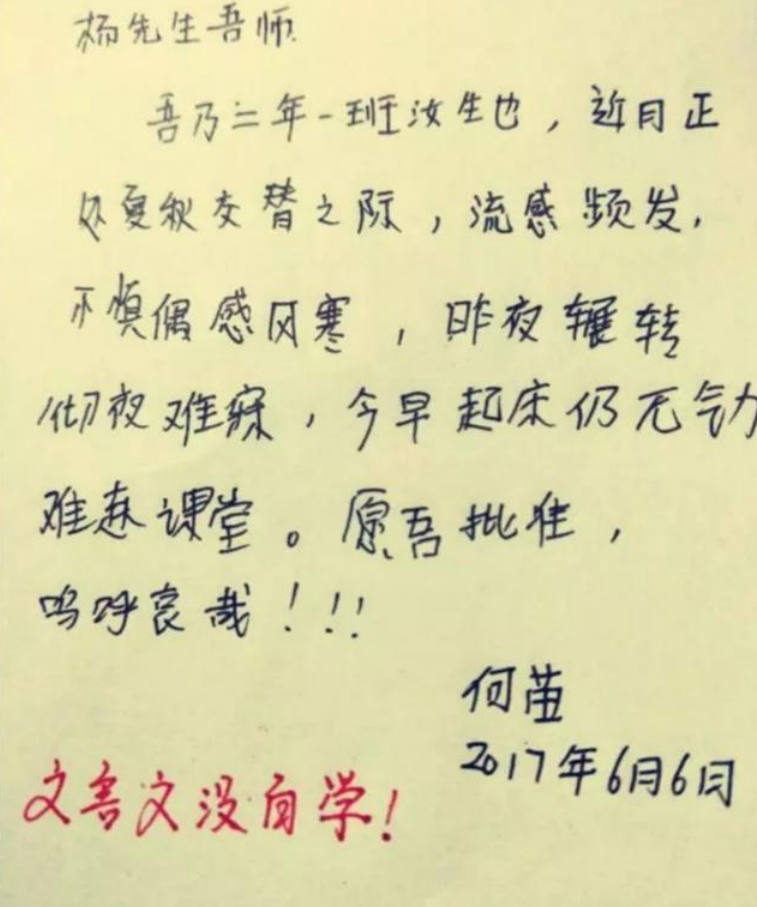 杨先生吾师
吾乃二年一班汝生也，近月正
处夏秋交替之际，流感频发，
不慎偶感风寒，昨夜辗转
彻夜难寐，今早起床仍无气力
难赴课堂。愿吾批准，
呜呼哀哉！！！
何苗
2017年6月6日
文言文没白学！